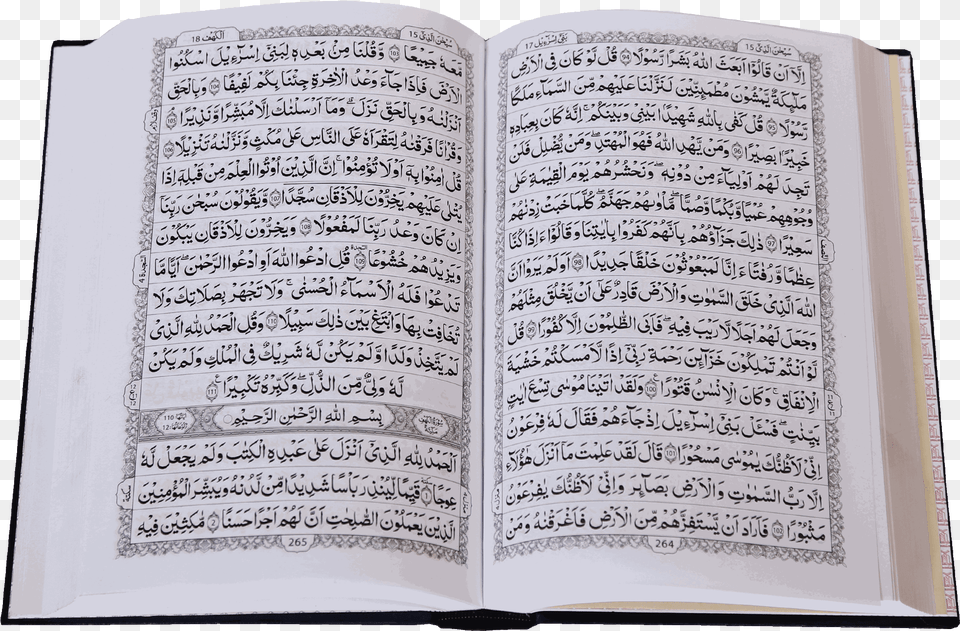 سُبْحٰنَ الَّذِيْٓ 15
بَنِيْٓ اِسْرَآءِيْل 17
اِلَّآ اَنْ قَالُوْٓا اَبَعَثَ اللّٰهُ بَشَرًا رَّسُوْلًا ﴿94﴾ قُلْ لَّوْ كَانَ فِي الْاَرْضِ
مَلٰٓئِكَةٌ يَّمْشُوْنَ مُطْمَئِنِّيْنَ لَنَزَّلْنَا عَلَيْهِمْ مِّنَ السَّمَآءِ مَلَكًا
رَّسُوْلًا ﴿95﴾ قُلْ كَفٰى بِاللّٰهِ شَهِيْدًۢا بَيْنِيْ وَبَيْنَكُمْ ؕ اِنَّهٗ كَانَ بِعِبَادِهٖ
خَبِيْرًۢا بَصِيْرًا ﴿96﴾ وَمَنْ يَّهْدِ اللّٰهُ فَهُوَ الْمُهْتَدِ ۚ وَمَنْ يُّضْلِلْ فَلَنْ
تَجِدَ لَهُمْ اَوْلِيَآءَ مِنْ دُوْنِهٖ ؕ وَنَحْشُرُهُمْ يَوْمَ الْقِيٰمَةِ عَلٰى
وُجُوْهِهِمْ عُمْيًا وَّبُكْمًا وَّصُمًّا ؕ مَاْوٰىهُمْ جَهَنَّمُ ؕ كُلَّمَا خَبَتْ زِدْنٰهُمْ
سَعِيْرًا ﴿97﴾ ذٰلِكَ جَزَآؤُهُمْ بِاَنَّهُمْ كَفَرُوْا بِاٰيٰتِنَا وَقَالُوْٓا ءَاِذَا كُنَّا
عِظَامًا وَّرُفَاتًا ءَاِنَّا لَمَبْعُوْثُوْنَ خَلْقًا جَدِيْدًا ﴿98﴾ اَوَلَمْ يَرَوْا اَنَّ
اللّٰهَ الَّذِيْ خَلَقَ السَّمٰوٰتِ وَالْاَرْضَ قَادِرٌ عَلٰٓى اَنْ يَّخْلُقَ مِثْلَهُمْ
وَجَعَلَ لَهُمْ اَجَلًا لَّا رَيْبَ فِيْهِ ؕ فَاَبَى الظّٰلِمُوْنَ اِلَّا كُفُوْرًا ﴿99﴾ قُلْ
لَّوْ اَنْتُمْ تَمْلِكُوْنَ خَزَآئِنَ رَحْمَةِ رَبِّيْٓ اِذًا لَّاَمْسَكْتُمْ خَشْيَةَ
الْاِنْفَاقِ ؕ وَكَانَ الْاِنْسَانُ قَتُوْرًا ﴿100﴾ وَلَقَدْ اٰتَيْنَا مُوْسٰى تِسْعَ اٰيٰتٍۭ
بَيِّنٰتٍ فَسْـَٔلْ بَنِيْٓ اِسْرَآءِيْلَ اِذْ جَآءَهُمْ فَقَالَ لَهٗ فِرْعَوْنُ
اِنِّيْ لَاَظُنُّكَ يٰمُوْسٰى مَسْحُوْرًا ﴿101﴾ قَالَ لَقَدْ عَلِمْتَ مَآ اَنْزَلَ هٰٓؤُلَآءِ
اِلَّا رَبُّ السَّمٰوٰتِ وَالْاَرْضِ بَصَآئِرَ ۚ وَاِنِّيْ لَاَظُنُّكَ يٰفِرْعَوْنُ
مَثْبُوْرًا ﴿102﴾ فَاَرَادَ اَنْ يَّسْتَفِزَّهُمْ مِّنَ الْاَرْضِ فَاَغْرَقْنٰهُ وَمَنْ
264
سُبْحٰنَ الَّذِيْٓ 15
اَلْكَهْف 18
مَّعَهٗ جَمِيْعًا ﴿103﴾ وَّقُلْنَا مِنْۢ بَعْدِهٖ لِبَنِيْٓ اِسْرَآءِيْلَ اسْكُنُوا
الْاَرْضَ فَاِذَا جَآءَ وَعْدُ الْاٰخِرَةِ جِئْنَا بِكُمْ لَفِيْفًا ﴿104﴾ وَبِالْحَقِّ
اَنْزَلْنٰهُ وَبِالْحَقِّ نَزَلَ ؕ وَمَآ اَرْسَلْنٰكَ اِلَّا مُبَشِّرًا وَّنَذِيْرًا ﴿105﴾
وَقُرْاٰنًا فَرَقْنٰهُ لِتَقْرَاَهٗ عَلَى النَّاسِ عَلٰى مُكْثٍ وَّنَزَّلْنٰهُ تَنْزِيْلًا ﴿106﴾
قُلْ اٰمِنُوْا بِهٖٓ اَوْ لَا تُؤْمِنُوْا ؕ اِنَّ الَّذِيْنَ اُوْتُوا الْعِلْمَ مِنْ قَبْلِهٖٓ اِذَا
يُتْلٰى عَلَيْهِمْ يَخِرُّوْنَ لِلْاَذْقَانِ سُجَّدًا ﴿107﴾ وَّيَقُوْلُوْنَ سُبْحٰنَ رَبِّنَآ
اِنْ كَانَ وَعْدُ رَبِّنَا لَمَفْعُوْلًا ﴿108﴾ وَيَخِرُّوْنَ لِلْاَذْقَانِ يَبْكُوْنَ
وَيَزِيْدُهُمْ خُشُوْعًا ﴿109﴾ قُلِ ادْعُوا اللّٰهَ اَوِ ادْعُوا الرَّحْمٰنَ ؕ اَيًّا مَّا
تَدْعُوْا فَلَهُ الْاَسْمَآءُ الْحُسْنٰى ۚ وَلَا تَجْهَرْ بِصَلَاتِكَ وَلَا
تُخَافِتْ بِهَا وَابْتَغِ بَيْنَ ذٰلِكَ سَبِيْلًا ﴿110﴾ وَقُلِ الْحَمْدُ لِلّٰهِ الَّذِيْ
لَمْ يَتَّخِذْ وَلَدًا وَّلَمْ يَكُنْ لَّهٗ شَرِيْكٌ فِي الْمُلْكِ وَلَمْ يَكُنْ
لَّهٗ وَلِيٌّ مِّنَ الذُّلِّ وَكَبِّرْهُ تَكْبِيْرًا ﴿111﴾
بِسْمِ اللّٰهِ الرَّحْمٰنِ الرَّحِيْمِ
اَلْحَمْدُ لِلّٰهِ الَّذِيْٓ اَنْزَلَ عَلٰى عَبْدِهِ الْكِتٰبَ وَلَمْ يَجْعَلْ لَّهٗ
عِوَجًا ﴿1﴾ قَيِّمًا لِّيُنْذِرَ بَاْسًا شَدِيْدًا مِّنْ لَّدُنْهُ وَيُبَشِّرَ الْمُؤْمِنِيْنَ
الَّذِيْنَ يَعْمَلُوْنَ الصّٰلِحٰتِ اَنَّ لَهُمْ اَجْرًا حَسَنًا ﴿2﴾ مَّاكِثِيْنَ فِيْهِ
265